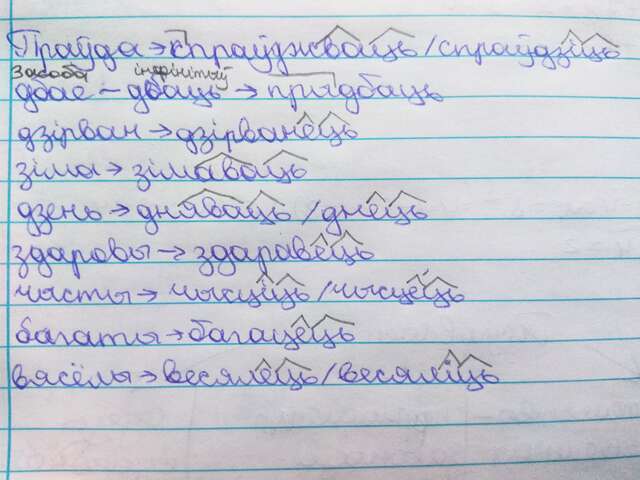 Праўда → спраўджваць / спраўдзіць
Засоба інфінітыў
дбае – дбаць → прыдбаць
дзірван → дзірванець
зіма → зімаваць
дзень → дняваць / днець
здаровы → здаравець
чысты → чысціць / чысцець
багаты → багацець
вясёлы → весялець / весяліць